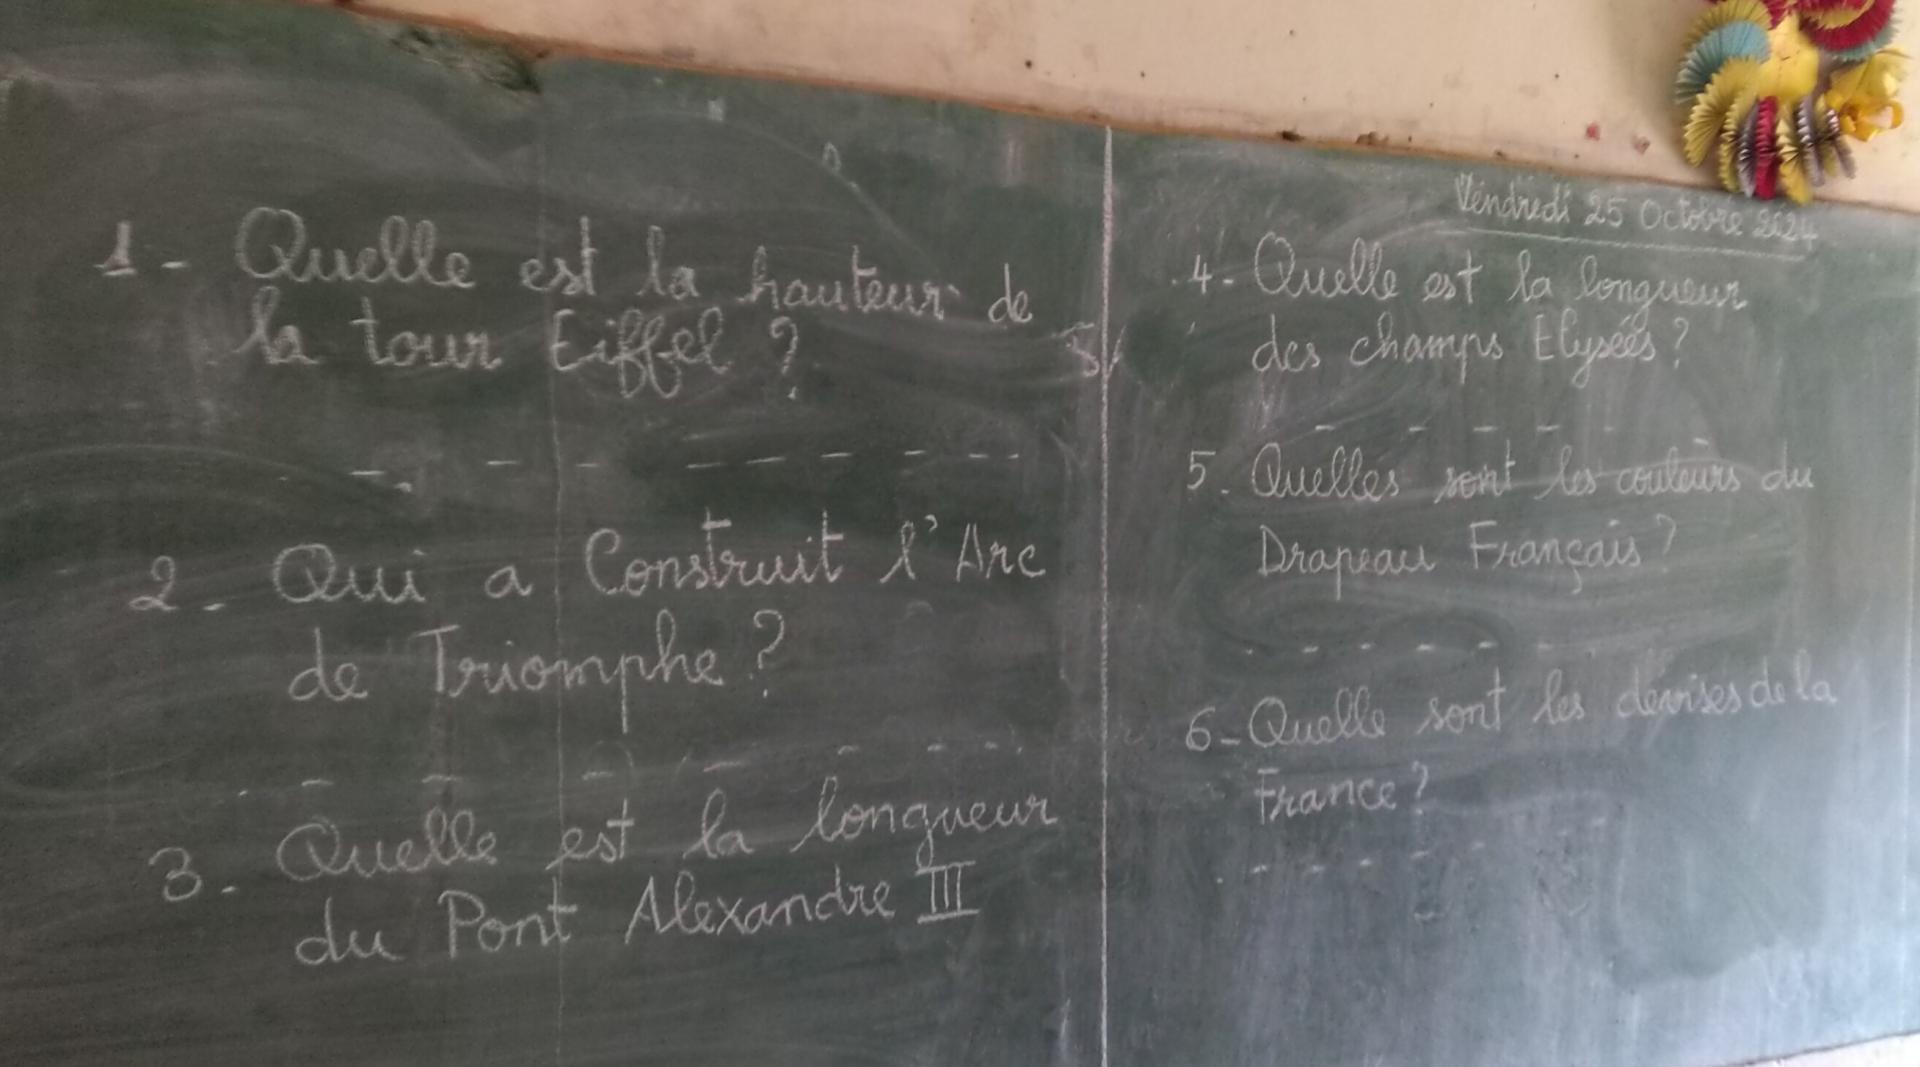 1- Quelle est la hauteur de
la tour Eiffel ?
2. Qui a Construit l'Arc
de Triomphe ?
3. Quelle est la longueur
du Pont Alexandre III
Vendredi 25 Octobre 2024
4- Quelle est la longueur
des champs Elysées ?
5. Quelles sont les couleurs du
Drapeau Français ?
6- Quelle sont les devises de la
France ?